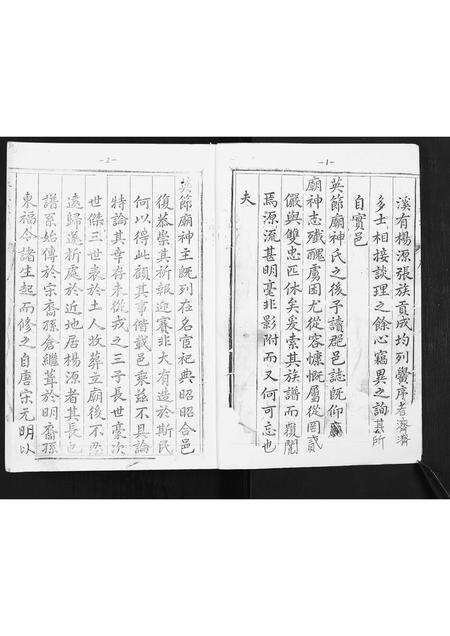 -1-
溪有楊源張族貢成均列黌序者濟濟
多士相接談理之餘心竊異之詢甚所
自實邑
英節廟神氏之後予讀郡邑誌既仰
廟神志殲醜虜困尤從容慷慨屬從罔貳
儼與雙忠匹休矣爰索其族譜而覆閱
焉源流甚明毫非影附而又何可忘也
夫
-2-
英節廟神主既列在名宦祀典昭昭合邑
復恭崇其祈報迎賽非大有造於斯民
何以得此顧其事偕載邑乘茲不具論
特論其幸存未從戎之三子長世豪次
世傑三世表於土人故葬立廟後不忍
遠歸遂析處於近地居楊源者其長也
譜系始傳於宗裔孫倉繼葺於明裔孫
東福今諸生起而修之自唐宋元明以